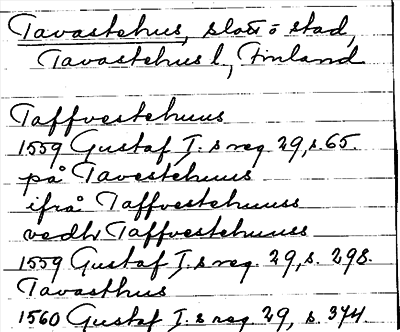 Tavastehus, slott o stad,
Tavastehus l., Finland
Taffvestehuus
1559 Gustaf I.s reg. 29, s. 65.
på Tavestehuus
ifrå Taffvestehuuss
vedh Taffvestehuuss
1559 Gustaf I.s reg. 29, s. 298.
Tavasthus
1560 Gustaf I.s reg. 29, s. 374.